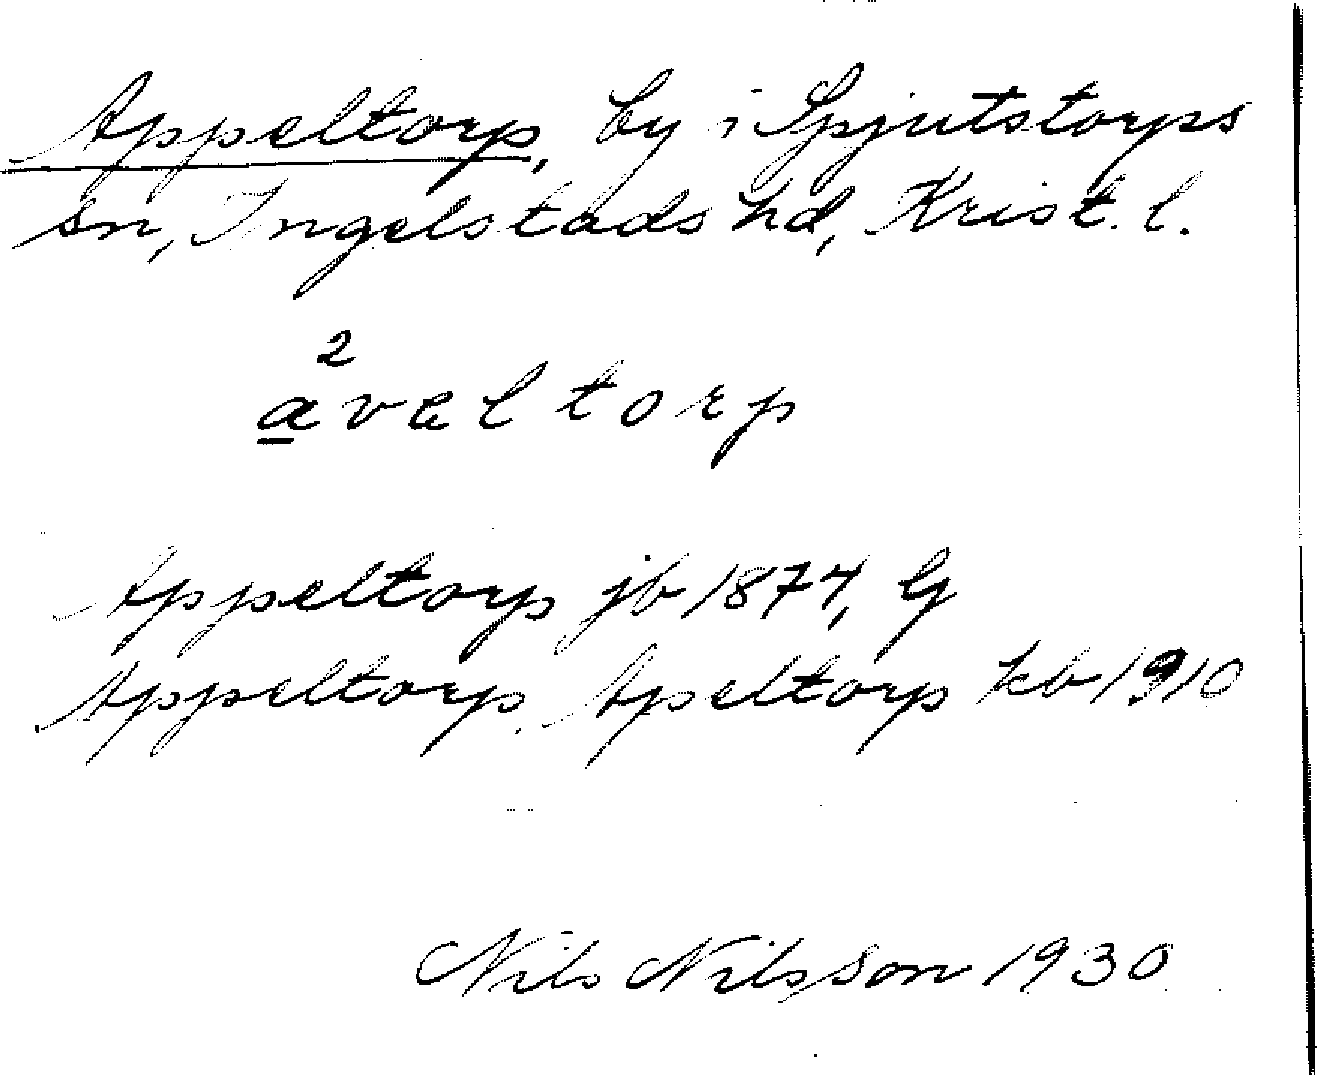 Appeltorp, by i Spjutstorps
sn, Ingelstads hd, Krist. l.
2
aveltorp
Appeltorp jb 1874, G
Appeltorp, Apeltorp kb 1910
Nils Nilsson 1930